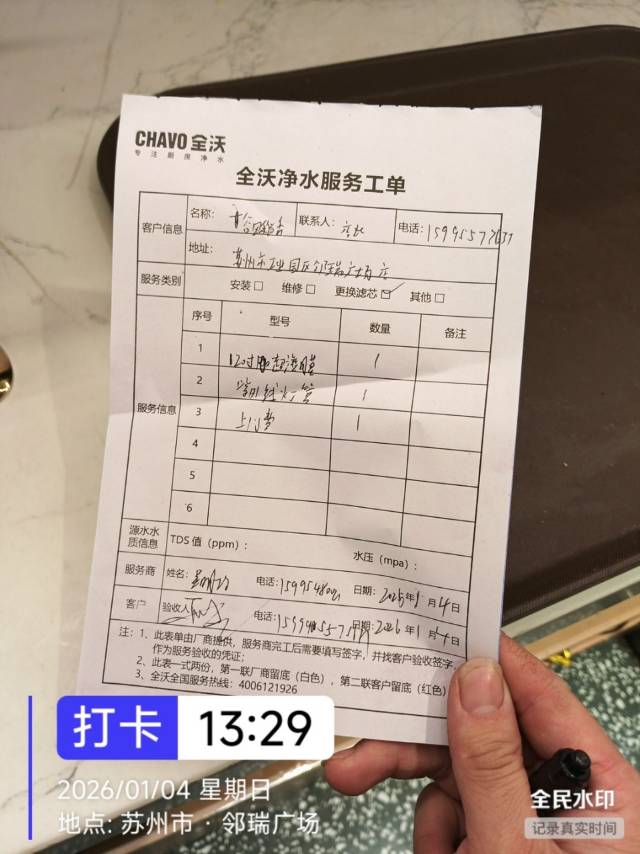 CHAVO 全沃
专注厨房净水
全沃净水服务工单
客户信息 名称: 联系人: 电话:
地址: 苏州市工业园区邻瑞广场店
服务类别 安装□ 维修□ 更换滤芯☑ 其他□
服务信息 序号 型号 数量 备注
1 超滤膜 1
2 紫外线灯管 1
3 上门费 1
4
5
6
源水水质信息 TDS 值 (ppm): 水压 (mpa):
服务商 姓名: 电话: 日期: 2026年1月4日
客户 验收人 电话: 日期: 2026年1月4日
注: 1、此表单由厂商提供, 服务商完工后需要填写签字, 并找客户验收签字,
作为服务验收的凭证;
2、此表一式两份, 第一联厂商留底 (白色), 第二联客户留底 (红色)
3、全沃全国服务热线: 4006121926
打卡 13:29
2026/01/04 星期日
地点: 苏州市 · 邻瑞广场
全民水印
记录真实时间